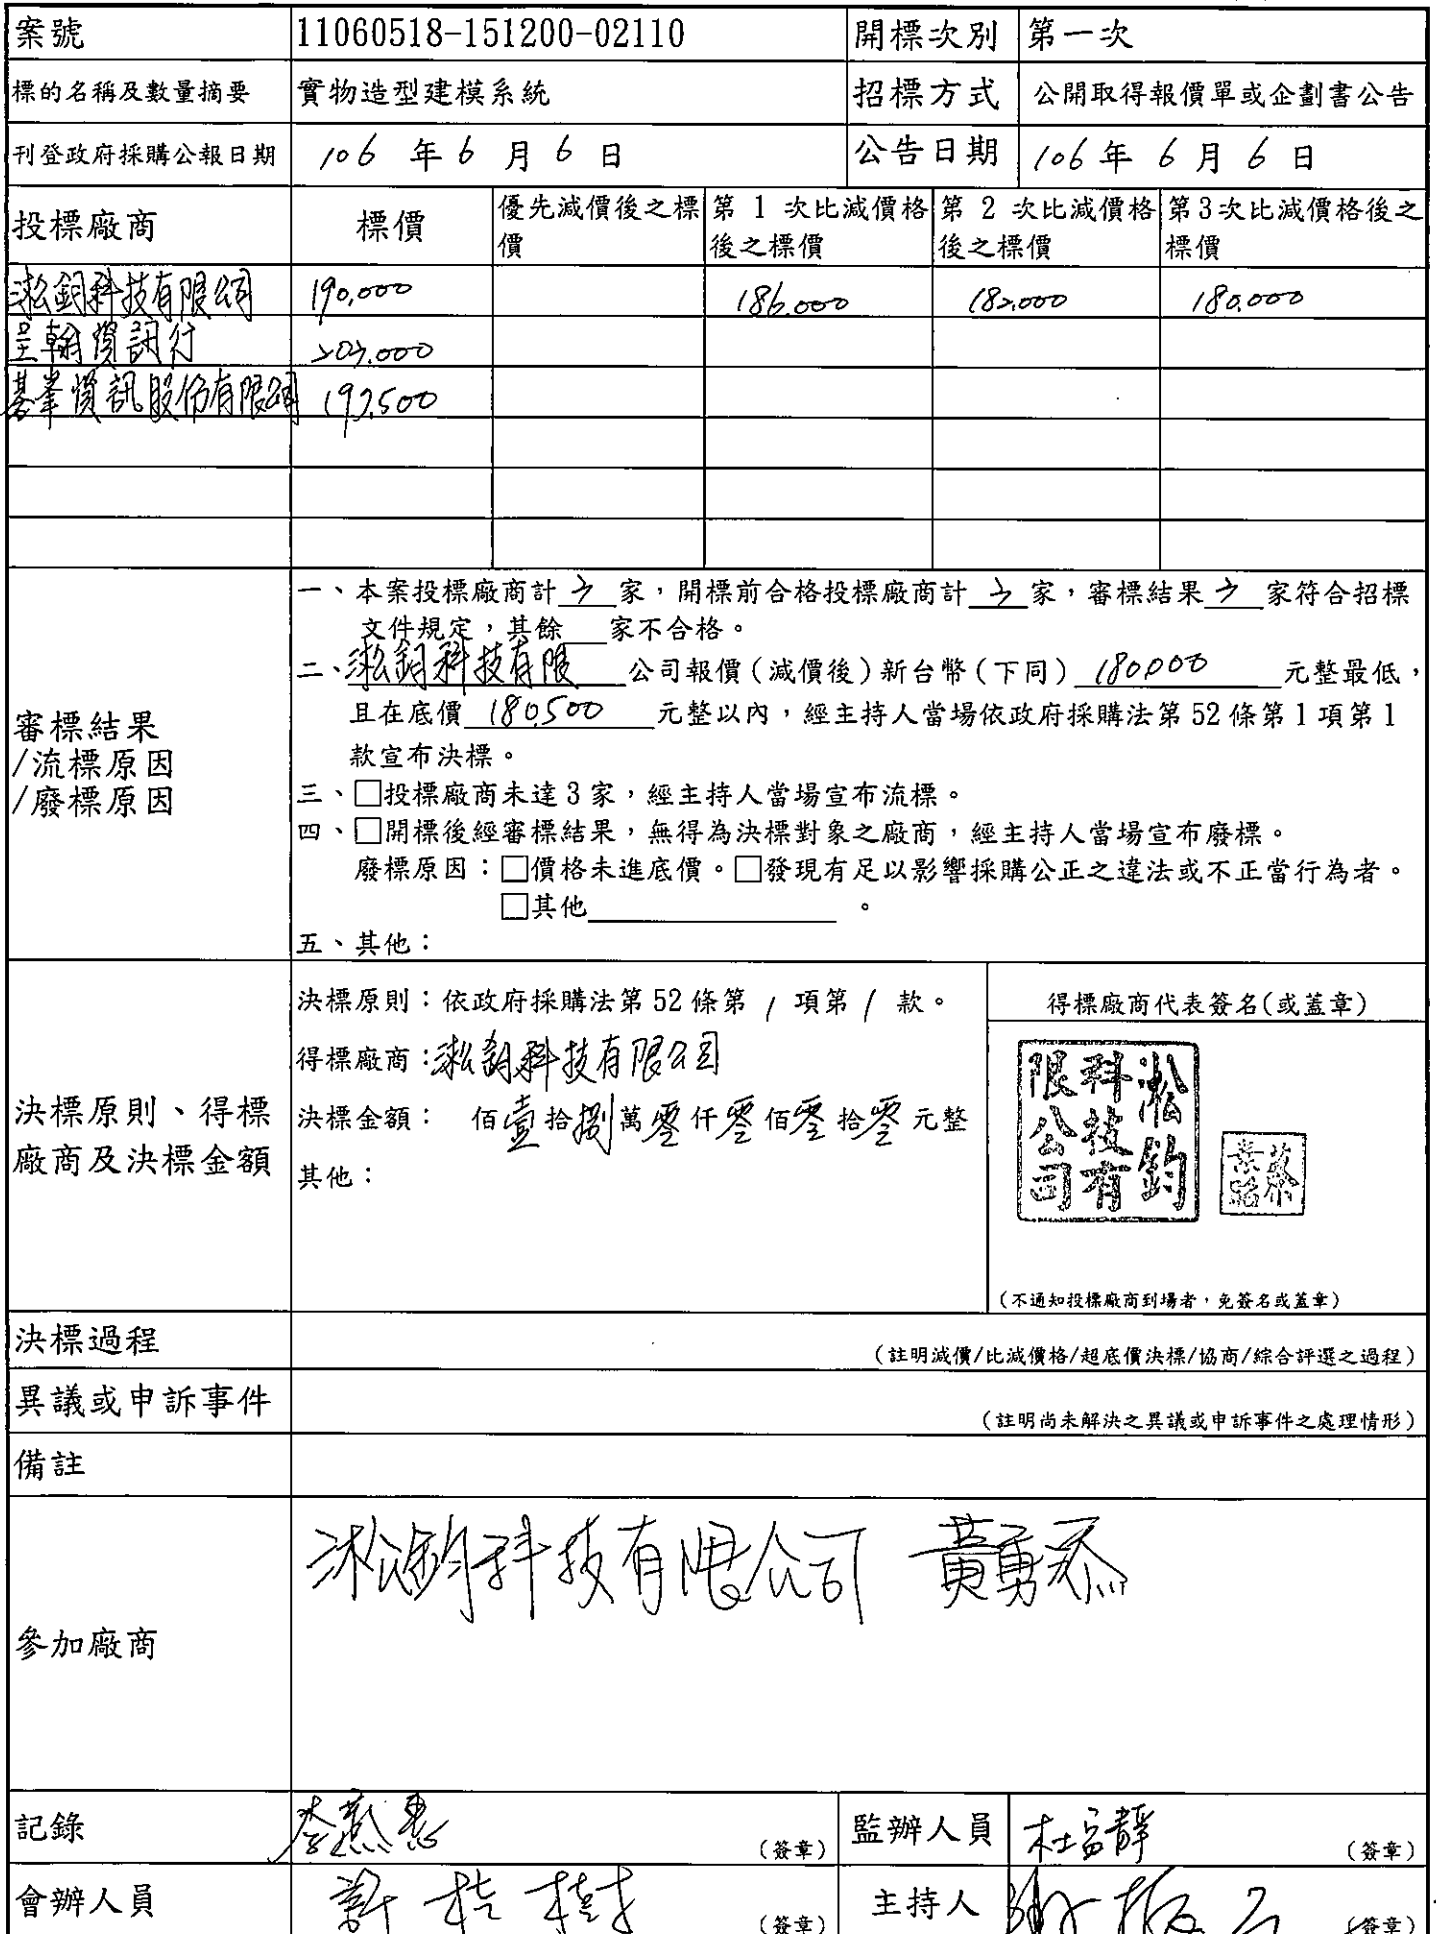 案號 11060518-151200-02110 開標次別 第一次
標的名稱及數量摘要 實物造型建模系統 招標方式 公開取得報價單或企劃書公告
刊登政府採購公報日期 106 年 6 月 6 日 公告日期 106 年 6 月 6 日
投標廠商 標價 優先減價後之標價 第 1 次比減價格後之標價 第 2 次比減價格後之標價 第3次比減價格後之標價
淞鈞科技有限公司 190,000 186,000 182,000 180,000
呈翰資訊行 ,000
資訊股份有限公司 197,500
一、本案投標廠商計 3 家,開標前合格投標廠商計 3 家,審標結果 3 家符合招標
文件規定,其餘 家不合格。
二、淞鈞科技有限 公司報價(減價後)新台幣(下同) 180000 元整最低,
且在底價 180500 元整以內,經主持人當場依政府採購法第 52 條第 1 項第 1
款宣布決標。
審標結果
/流標原因
/廢標原因
三、□投標廠商未達 3 家,經主持人當場宣布流標。
四、□開標後經審標結果,無得為決標對象之廠商,經主持人當場宣布廢標。
廢標原因:□價格未進底價。□發現有足以影響採購公正之違法或不正當行為者。
□其他 。
五、其他:
決標原則、得標
廠商及決標金額
決標原則:依政府採購法第 52 條第 1 項第 1 款。
得標廠商:淞鈞科技有限公司
決標金額: 佰壹拾捌萬零仟零佰零拾零元整
其他:
得標廠商代表簽名(或蓋章)
淞鈞
科技有
限公司
(不通知投標廠商到場者,免簽名或蓋章)
決標過程 (註明減價/比減價格/超底價決標/協商/綜合評選之過程)
異議或申訴事件 (註明尚未解決之異議或申訴事件之處理情形)
備註
參加廠商 淞鈞科技有限公司 黃勇添
記錄 李燕惠 (簽章) 監辦人員 杜富靜 (簽章)
會辦人員 許桂樹 (簽章) 主持人 (簽章)